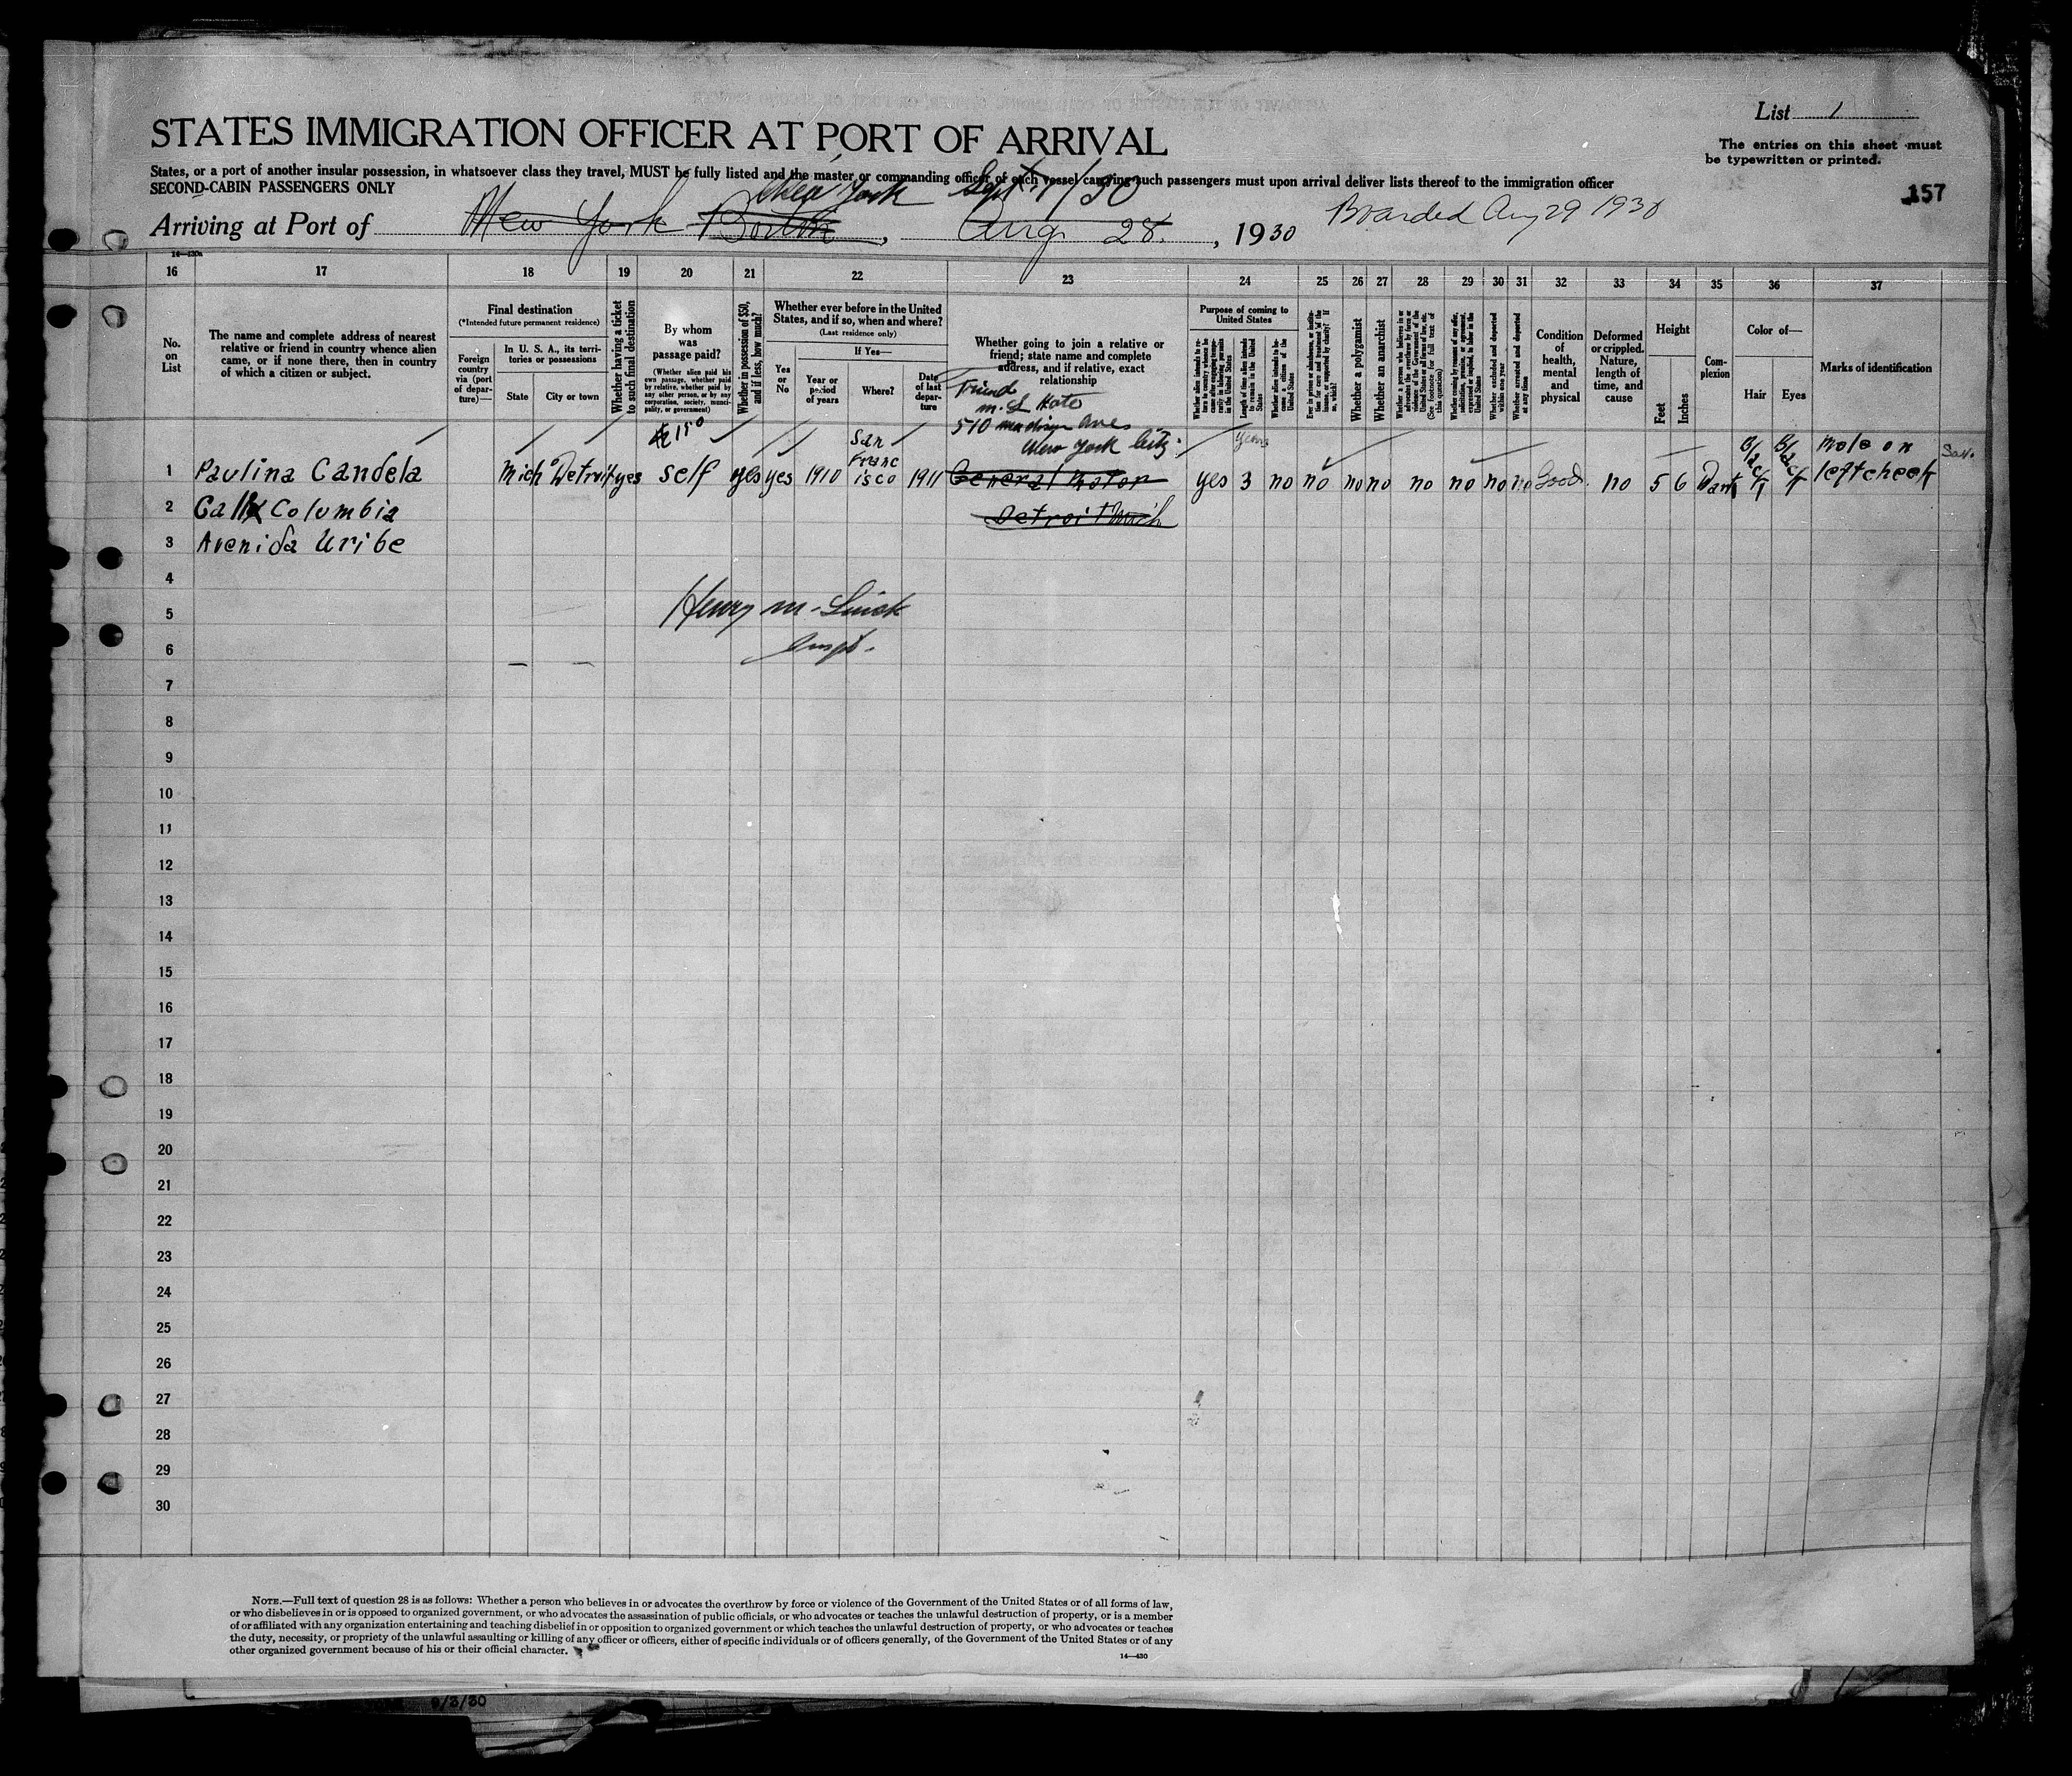 List 1
STATES IMMIGRATION OFFICER AT PORT OF ARRIVAL
The entries on this sheet must
be typewritten or printed.
States, or a port of another insular possession, in whatsoever class they travel, MUST be fully listed and the master or commanding officer of each vessel carrying such passengers must upon arrival deliver lists thereof to the immigration officer
SECOND-CABIN PASSENGERS ONLY
157
New York Sept 1/30
Arriving at Port of New York Boston, Aug 28, 1930 Boarded Aug 29 1930
14—430a
16 17 18 19 20 21 22 23 24 25 26 27 28 29 30 31 32 33 34 35 36 37
No.
on
List
The name and complete address of nearest
relative or friend in country whence alien
came, or if none there, then in country
of which a citizen or subject.
Final destination
(*Intended future permanent residence)
Foreign
country
via (port
of depar-
ture)—
In U. S. A., its terri-
tories or possessions
State
City or town
Whether having a ticket
to such final destination
By whom
was
passage paid?
(Whether alien paid his
own passage, whether paid
by relative, whether paid by
any other person, or by any
corporation, society, munici-
pality, or government)
Whether in possession of $50,
and if less, how much?
Whether ever before in the United
States, and if so, when and where?
(Last residence only)
If Yes—
Yes
or
No
Year or
period
of years
Where?
Date
of last
depar-
ture
Whether going to join a relative or
friend; state name and complete
address, and if relative, exact
relationship
Purpose of coming to
United States
Length of time alien intends
to remain in the United
States
Whether alien intends to be-
come a citizen of the
United States
Whether a polygamist
Whether an anarchist
Whether excluded and deported
within one year
Whether arrested and deported
at any time
Condition
of
health,
mental
and
physical
Deformed
or crippled.
Nature,
length of
time, and
cause
Height
Feet
Inches
Com-
plexion
Color of—
Hair
Eyes
Marks of identification
Friend
510 Madison Ave
New York City
$150
San
Franc
isco
Years
Mole on
left cheek
1 Paulina Candela Mich Detroit yes self yes yes 1910 1911 General Motor yes 3 no no no no no no no no Good no 5 6 Dark
2 Calle Columbia Detroit Mich
3 Avenida Uribe
4
5
Henry M.
6
Inspt.
7
8
9
10
11
12
13
14
15
16
17
18
19
20
21
22
23
24
25
26
27
28
29
30
NOTE.—Full text of question 28 is as follows: Whether a person who believes in or advocates the overthrow by force or violence of the Government of the United States or of all forms of law,
or who disbelieves in or is opposed to organized government, or who advocates the assassination of public officials, or who advocates or teaches the unlawful destruction of property, or is a member
of or affiliated with any organization entertaining and teaching disbelief in or opposition to organized government or which teaches the unlawful destruction of property, or who advocates or teaches
the duty, necessity, or propriety of the unlawful assaulting or killing of any officer or officers, either of specific individuals or of officers generally, of the Government of the United States or of any
other organized government because of his or their official character.
14—430
9/3/30